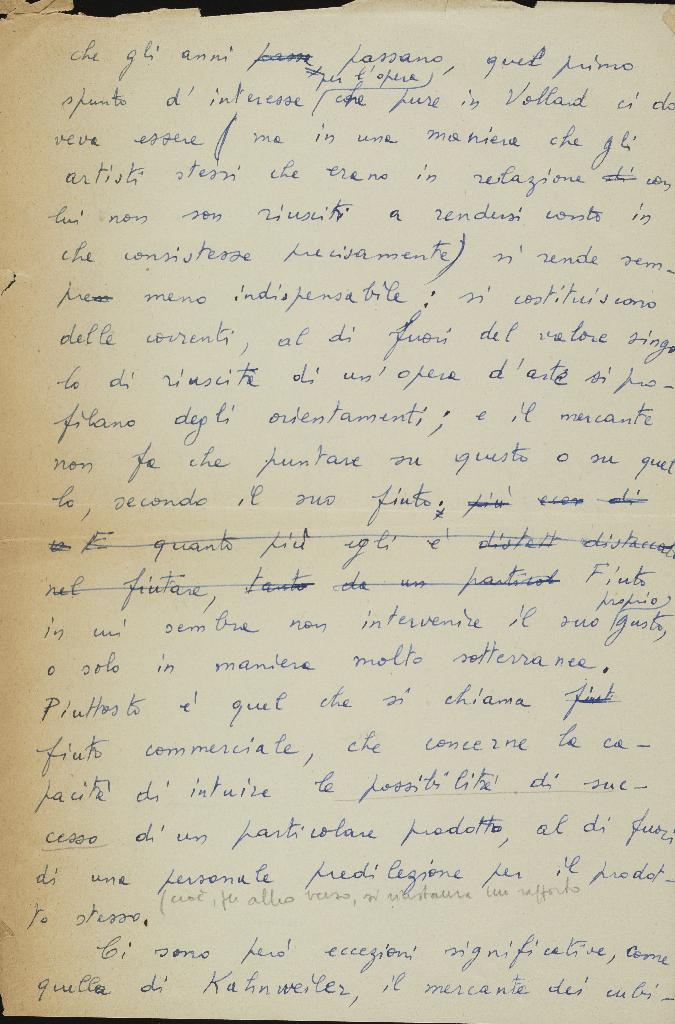 che gli anni passa passano, quel primo
per l'opera
spunto d'interesse (che pure in Vollard ci do
veva essere (ma in una maniera che gli
artisti stessi che erano in relazione di con
lui non son riusciti a rendersi conto in
che consistesse precisamente) si rende sem-
pre meno indispensabile: si costituiscono
delle correnti, al di fuori del valore singo
lo di riuscita di un'opera d'arte si pro-
filano degli orientamenti; e il mercante
non fa che puntare su questo o su quel
lo, secondo il suo fiuto; più di
E quanto più egli è distaccat
nel fiutare, tanto da un particol Fiuto
proprio
in cui sembra non intervenire il suo gusto,
o solo in maniera molto sotterranea.
Piuttosto è quel che si chiama fiut
fiuto commerciale, che concerne la ca-
pacità di intuire le possibilità di suc-
cesso di un particolare prodotto, al di fuori
di una personale predilezione per il prodot-
(cioè, per altro verso, si riinstaura un rapporto
to stesso.
Ci sono però eccezioni significative, come
quella di Kahnweiler, il mercante dei cubi-